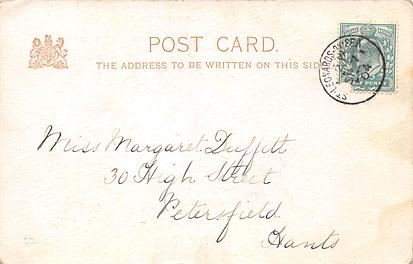 POST CARD.
THE ADDRESS TO BE WRITTEN ON THIS SIDE
ST LEONARDS-ON-SEA
Miss Margaret Duffett
30 High Street
Petersfield
Hants